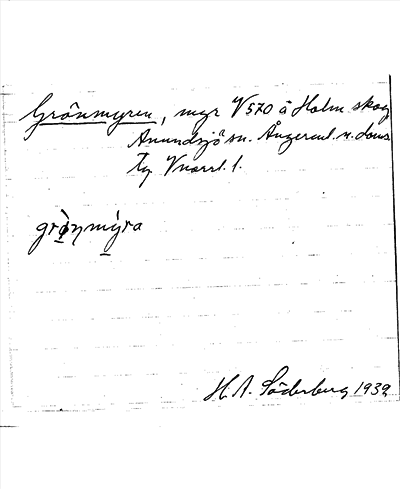 Grönmyren, myr V 570 å Holm skog
Anundsjö sn. Ångerml. n. doms
tg Vnorrl. l.
grò̱ŋmý̱ra
H. A. Söderberg 1939